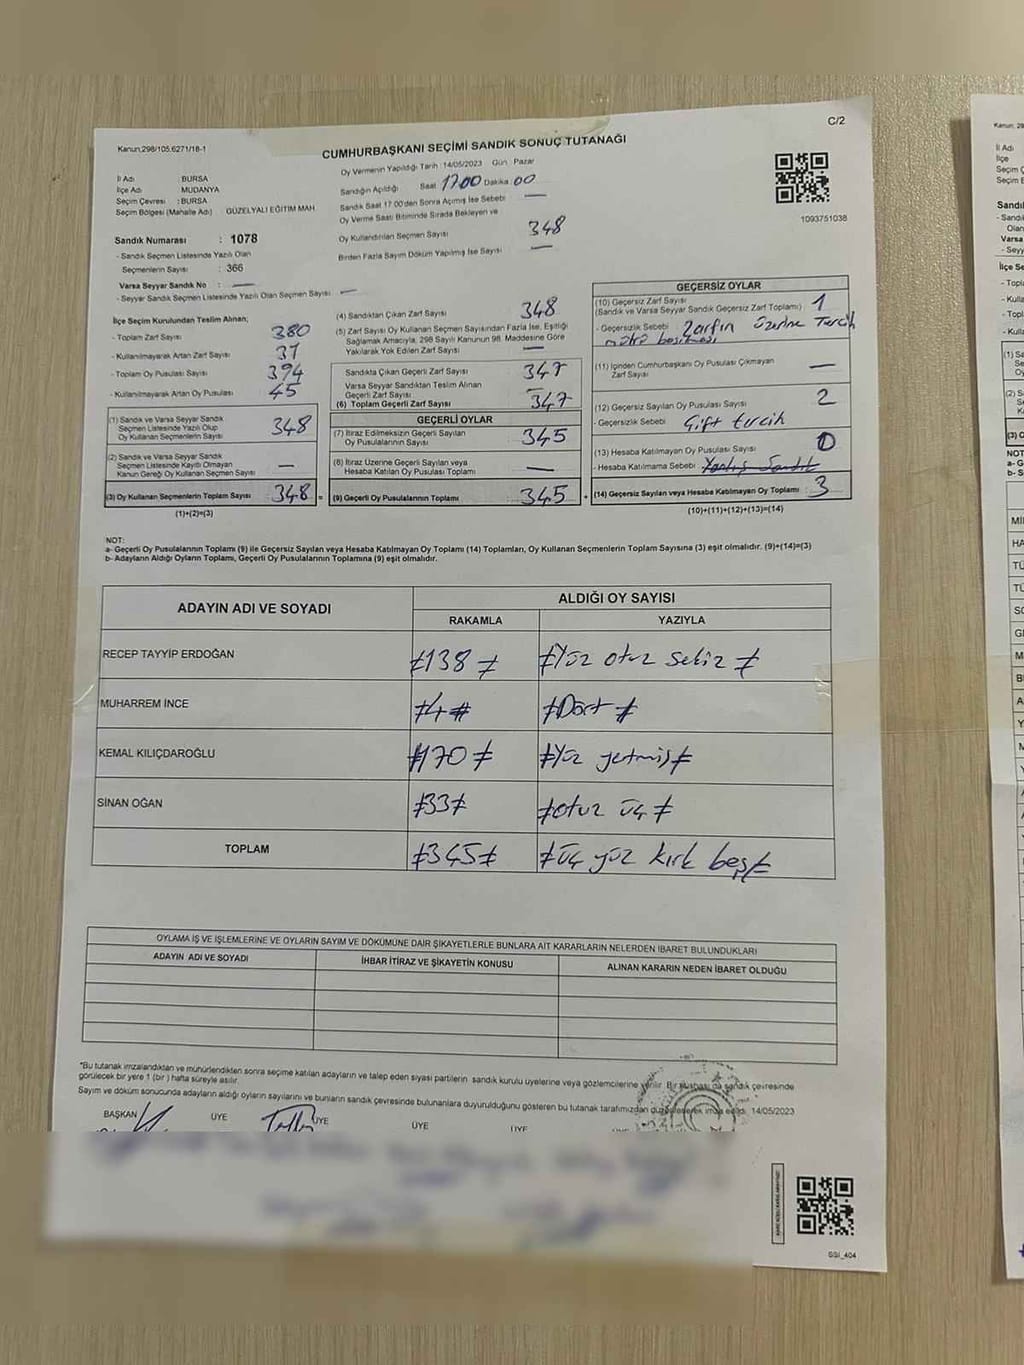 C/2
Kanun,298/105.6271/18-1
CUMHURBAŞKANI SEÇİMİ SANDIK SONUÇ TUTANAĞI
Oy Vermenin Yapıldığı Tarih : 14/05/2023 Gün : Pazar
İl Adı : BURSA
İlçe Adı : MUDANYA
Seçim Çevresi : BURSA
Seçim Bölgesi (Mahalle Adı) GÜZELYALI EĞİTİM MAH.
Sandığın Açıldığı Saat 17.00 Dakika :00
Sandık Saat 17:00'den Sonra Açılmış İse Sebebi —
Oy Verme Saati Bitiminde Sırada Bekleyen ve
Oy Kullandırılan Seçmen Sayısı 348
Birden Fazla Sayım Döküm Yapılmış İse Sayısı —
1093751038
Sandık Numarası : 1078
- Sandık Seçmen Listesinde Yazılı Olan
Seçmenlerin Sayısı : 366
Varsa Seyyar Sandık No : —
- Seyyar Sandık Seçmen Listesinde Yazılı Olan Seçmen Sayısı : —
İlçe Seçim Kurulundan Teslim Alınan;
- Toplam Zarf Sayısı 380
- Kullanılmayarak Artan Zarf Sayısı 31
- Toplam Oy Pusulası Sayısı 394
- Kullanılmayarak Artan Oy Pusulası 45
(1) Sandık ve Varsa Seyyar Sandık
Seçmen Listesinde Yazılı Olup
Oy Kullanan Seçmenlerin Sayısı 348
(2) Sandık ve Varsa Seyyar Sandık
Seçmen Listesinde Kayıtlı Olmayan
Kanun Gereği Oy Kullanan Seçmen Sayısı —
(3) Oy Kullanan Seçmenlerin Toplam Sayısı 348 =
(1)+(2)=(3)
(4) Sandıktan Çıkan Zarf Sayısı 348
(5) Zarf Sayısı Oy Kullanan Seçmen Sayısından Fazla İse, Eşitliği
Sağlamak Amacıyla, 298 Sayılı Kanunun 98. Maddesine Göre
Yakılarak Yok Edilen Zarf Sayısı —
Sandıkta Çıkan Geçerli Zarf Sayısı 347
Varsa Seyyar Sandıktan Teslim Alınan
Geçerli Zarf Sayısı —
(6) Toplam Geçerli Zarf Sayısı 347
GEÇERLİ OYLAR
(7) İtiraz Edilmeksizin Geçerli Sayılan
Oy Pusulasının Sayısı 345
(8) İtiraz Üzerine Geçerli Sayılan veya
Hesaba Katılan Oy Pusulası Toplamı —
(9) Geçerli Oy Pusulalarının Toplamı 345 +
GEÇERSİZ OYLAR
(10) Geçersiz Zarf Sayısı
(Sandık ve Varsa Seyyar Sandık Geçersiz Zarf Toplamı) 1
- Geçersizlik Sebebi Zarfın üzerine Tercih
mührü basılması
(11) İçinden Cumhurbaşkanı Oy Pusulası Çıkmayan
Zarf Sayısı —
(12) Geçersiz Sayılan Oy Pusulası Sayısı 2
- Geçersizlik Sebebi Çift tercih
(13) Hesaba Katılmayan Oy Pusulası Sayısı 0
- Hesaba Katılmama Sebebi Yanlış Sandık
(14) Geçersiz Sayılan veya Hesaba Katılmayan Oy Toplamı 3
(10)+(11)+(12)+(13)=(14)
NOT:
a- Geçerli Oy Pusulalarının Toplamı (9) ile Geçersiz Sayılan veya Hesaba Katılmayan Oy Toplamı (14) Toplamları, Oy Kullanan Seçmenlerin Toplam Sayısına (3) eşit olmalıdır. (9)+(14)=(3)
b- Adayların Aldığı Oyların Toplamı, Geçerli Oy Pusulalarının Toplamına (9) eşit olmalıdır.
ADAYIN ADI VE SOYADI ALDIĞI OY SAYISI
RAKAMLA YAZIYLA
RECEP TAYYİP ERDOĞAN ≠138≠ ≠Yüz otuz sekiz≠
MUHARREM İNCE ≠4≠ ≠Dört≠
KEMAL KILIÇDAROĞLU ≠170≠ ≠Yüz yetmiş≠
SİNAN OĞAN ≠33≠ ≠otuz üç≠
TOPLAM ≠345≠ ≠üç yüz kırk beş≠
OYLAMA İŞ VE İŞLEMLERİNE VE OYLARIN SAYIM VE DÖKÜMÜNE DAİR ŞİKAYETLERLE BUNLARA AİT KARARLARIN NELERDEN İBARET BULUNDUKLARI
ADAYIN ADI VE SOYADI İHBAR İTİRAZ VE ŞİKAYETİN KONUSU ALINAN KARARIN NEDEN İBARET OLDUĞU
*Bu tutanak imzalandıktan ve mühürlendikten sonra seçime katılan adayların ve talep eden siyasi partilerin sandık kurulu üyelerine veya gözlemcilerine verilir. Bir nüshası da sandık çevresinde
görülecek bir yere 1 (bir) hafta süreyle asılır.
Sayım ve döküm sonucunda adayların aldığı oyların sayılarını ve bunların sandık çevresinde bulunanlara duyurulduğunu gösteren bu tutanak tarafımızdan düzenlenerek imza edildi. 14/05/2023
BAŞKAN ÜYE ÜYE ÜYE ÜYE
SSI_404